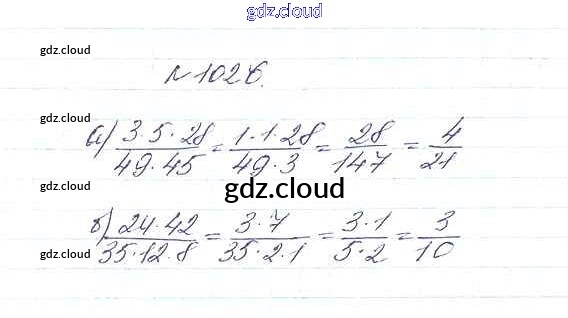 gdz.cloud
gdz.cloud
№ 1026.
gdz.cloud
а) 3·5·28/49·45 = 1·1·28/49·3 = 28/147 = 4/21
gdz.cloud
б) 24·42/35·12·8 = 3·7/35·2·1 = 3·1/5·2 = 3/10
gdz.cloud